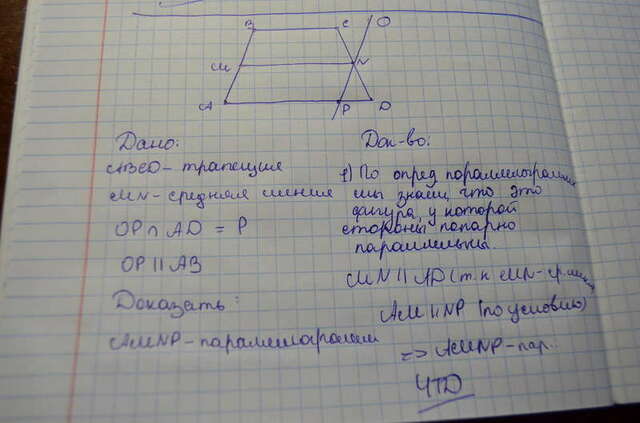 B C O
M N
A P D
Дано:
ABCD - трапеция
MN - средняя линия
OP ∩ AD = P
OP || AB
Доказать:
AMNP - параллелограмм
Док-во:
1) По опред параллелограмма
мы знаем что это
фигура, у которой
стороны попарно
параллельны.
MN || AD (т.к MN - ср. линия
AM || NP (по условию)
=> AMNP - пар..
ЧТД